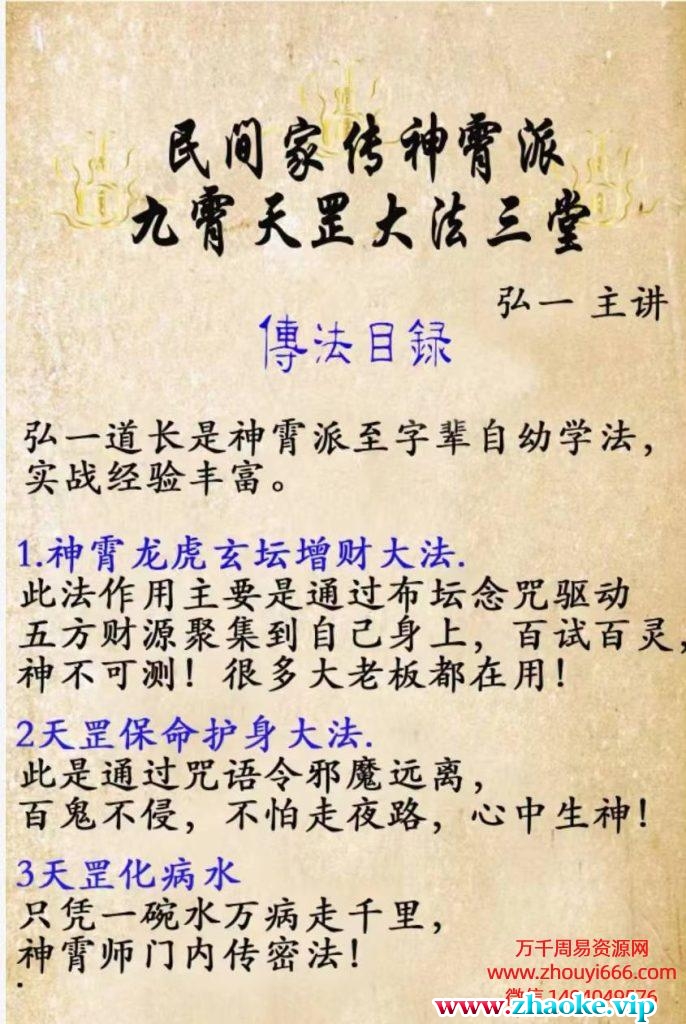 民间家传神霄派
九霄天罡大法三堂
弘一 主讲
傳法目録
弘一道长是神霄派至字辈自幼学法，
实战经验丰富。
1.神霄龙虎玄坛增财大法.
此法作用主要是通过布坛念咒驱动
五方财源聚集到自己身上，百试百灵，
神不可测！很多大老板都在用！
2天罡保命护身大法.
此是通过咒语令邪魔远离，
百鬼不侵，不怕走夜路，心中生神！
3天罡化病水
只凭一碗水万病走千里，
神霄师门内传密法！
万千周易资源网
www.zhouyi666.com
微信
www.zhaoke.vip